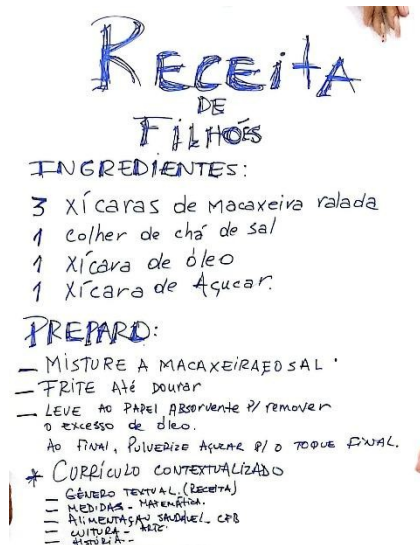 RECEITA
DE
FILHÓES
INGREDIENTES:
3 Xícaras de Macaxeira ralada
1 Colher de chá de sal
1 Xícara de óleo
1 Xícara de Açucar.
PREPARO:
— MISTURE A MACAXEIRA E O SAL.
— FRITE Até Dourar
— LEVE AO PAPEL ABSORVENTE P/ remover
o excesso de óleo.
AO FINAL, PULVERIZE AÇUCAR P/ O TOQUE FINAL.
* CURRÍCULO CONTEXTUALIZADO
— GÊNERO TEXTUAL. (RECEITA)
— MEDIDAS - MATEMÁTICA.
— ALIMENTAÇÃO SAUDÁVEL - CPB
— CULTURA - ARTE.
— HISTÓRIA -